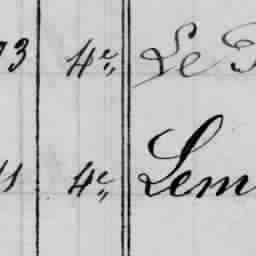 73 4e Le
11 4e Lem